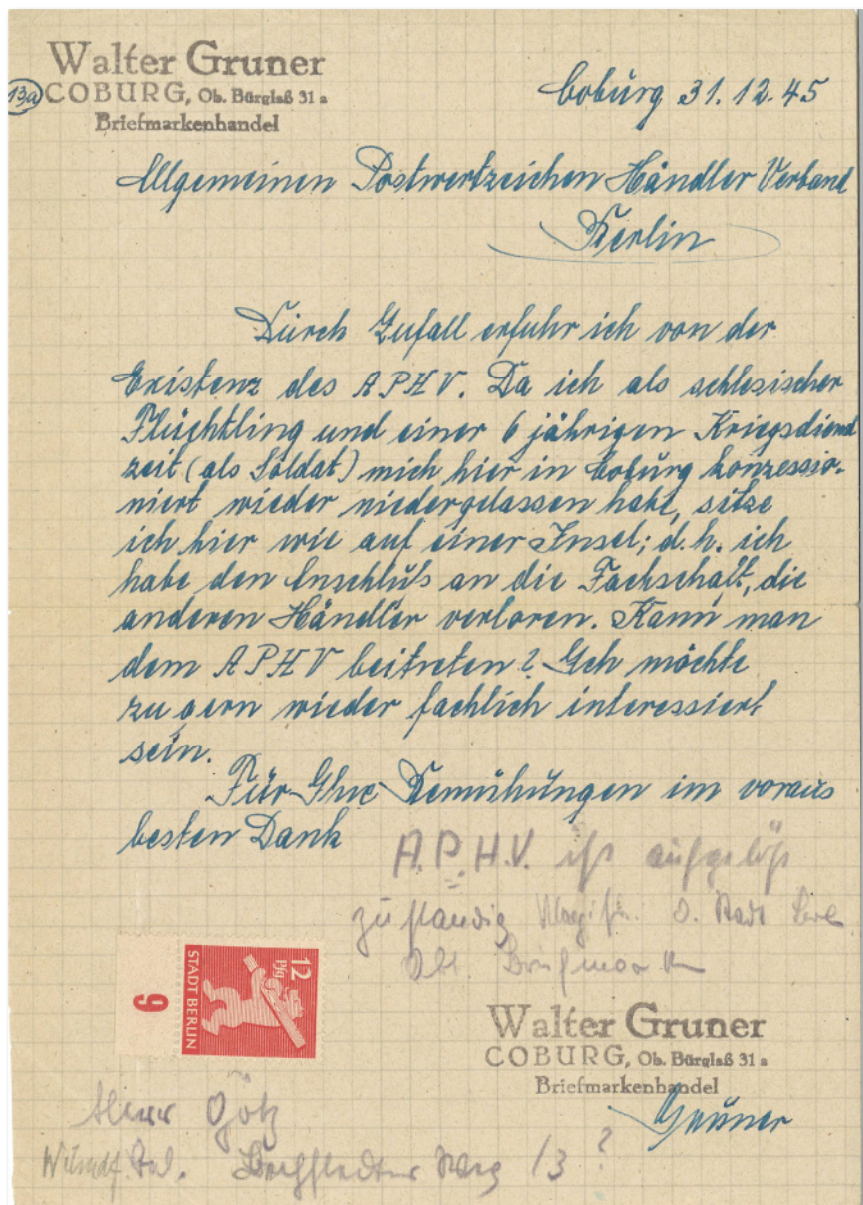 Walter Gruner
13a COBURG, Ob. Bürglaß 31 a
Briefmarkenhandel
Coburg 31.12.45
Allgemeinen Postwertzeichen Händler Verband
Berlin
Durch Zufall erfuhr ich von der
Existenz des APHV. Da ich als schlesischer
Flüchtling und einer 6 jährigen Kriegsdienst
zeit (als Soldat) mich hier in Coburg konzessio-
niert wieder niedergelassen habe, sitze
ich hier wie auf einer Insel; d.h. ich
habe den Anschluß an die Fachschaft, die
anderen Händler verloren. Kann man
dem APHV beitreten? Ich möchte
zu gern wieder fachlich interessiert
sein.
Für Ihre Bemühungen im voraus
besten Dank
A.P.H.V. ist aufgelöst
zuständig Magistr. d. Stadt
Abt. Briefmarken
12 Pfg
STADT BERLIN
6
Walter Gruner
COBURG, Ob. Bürglaß 31 a
Briefmarkenhandel
Gruner
Herr Götz
Wilmdf. Weg 13?